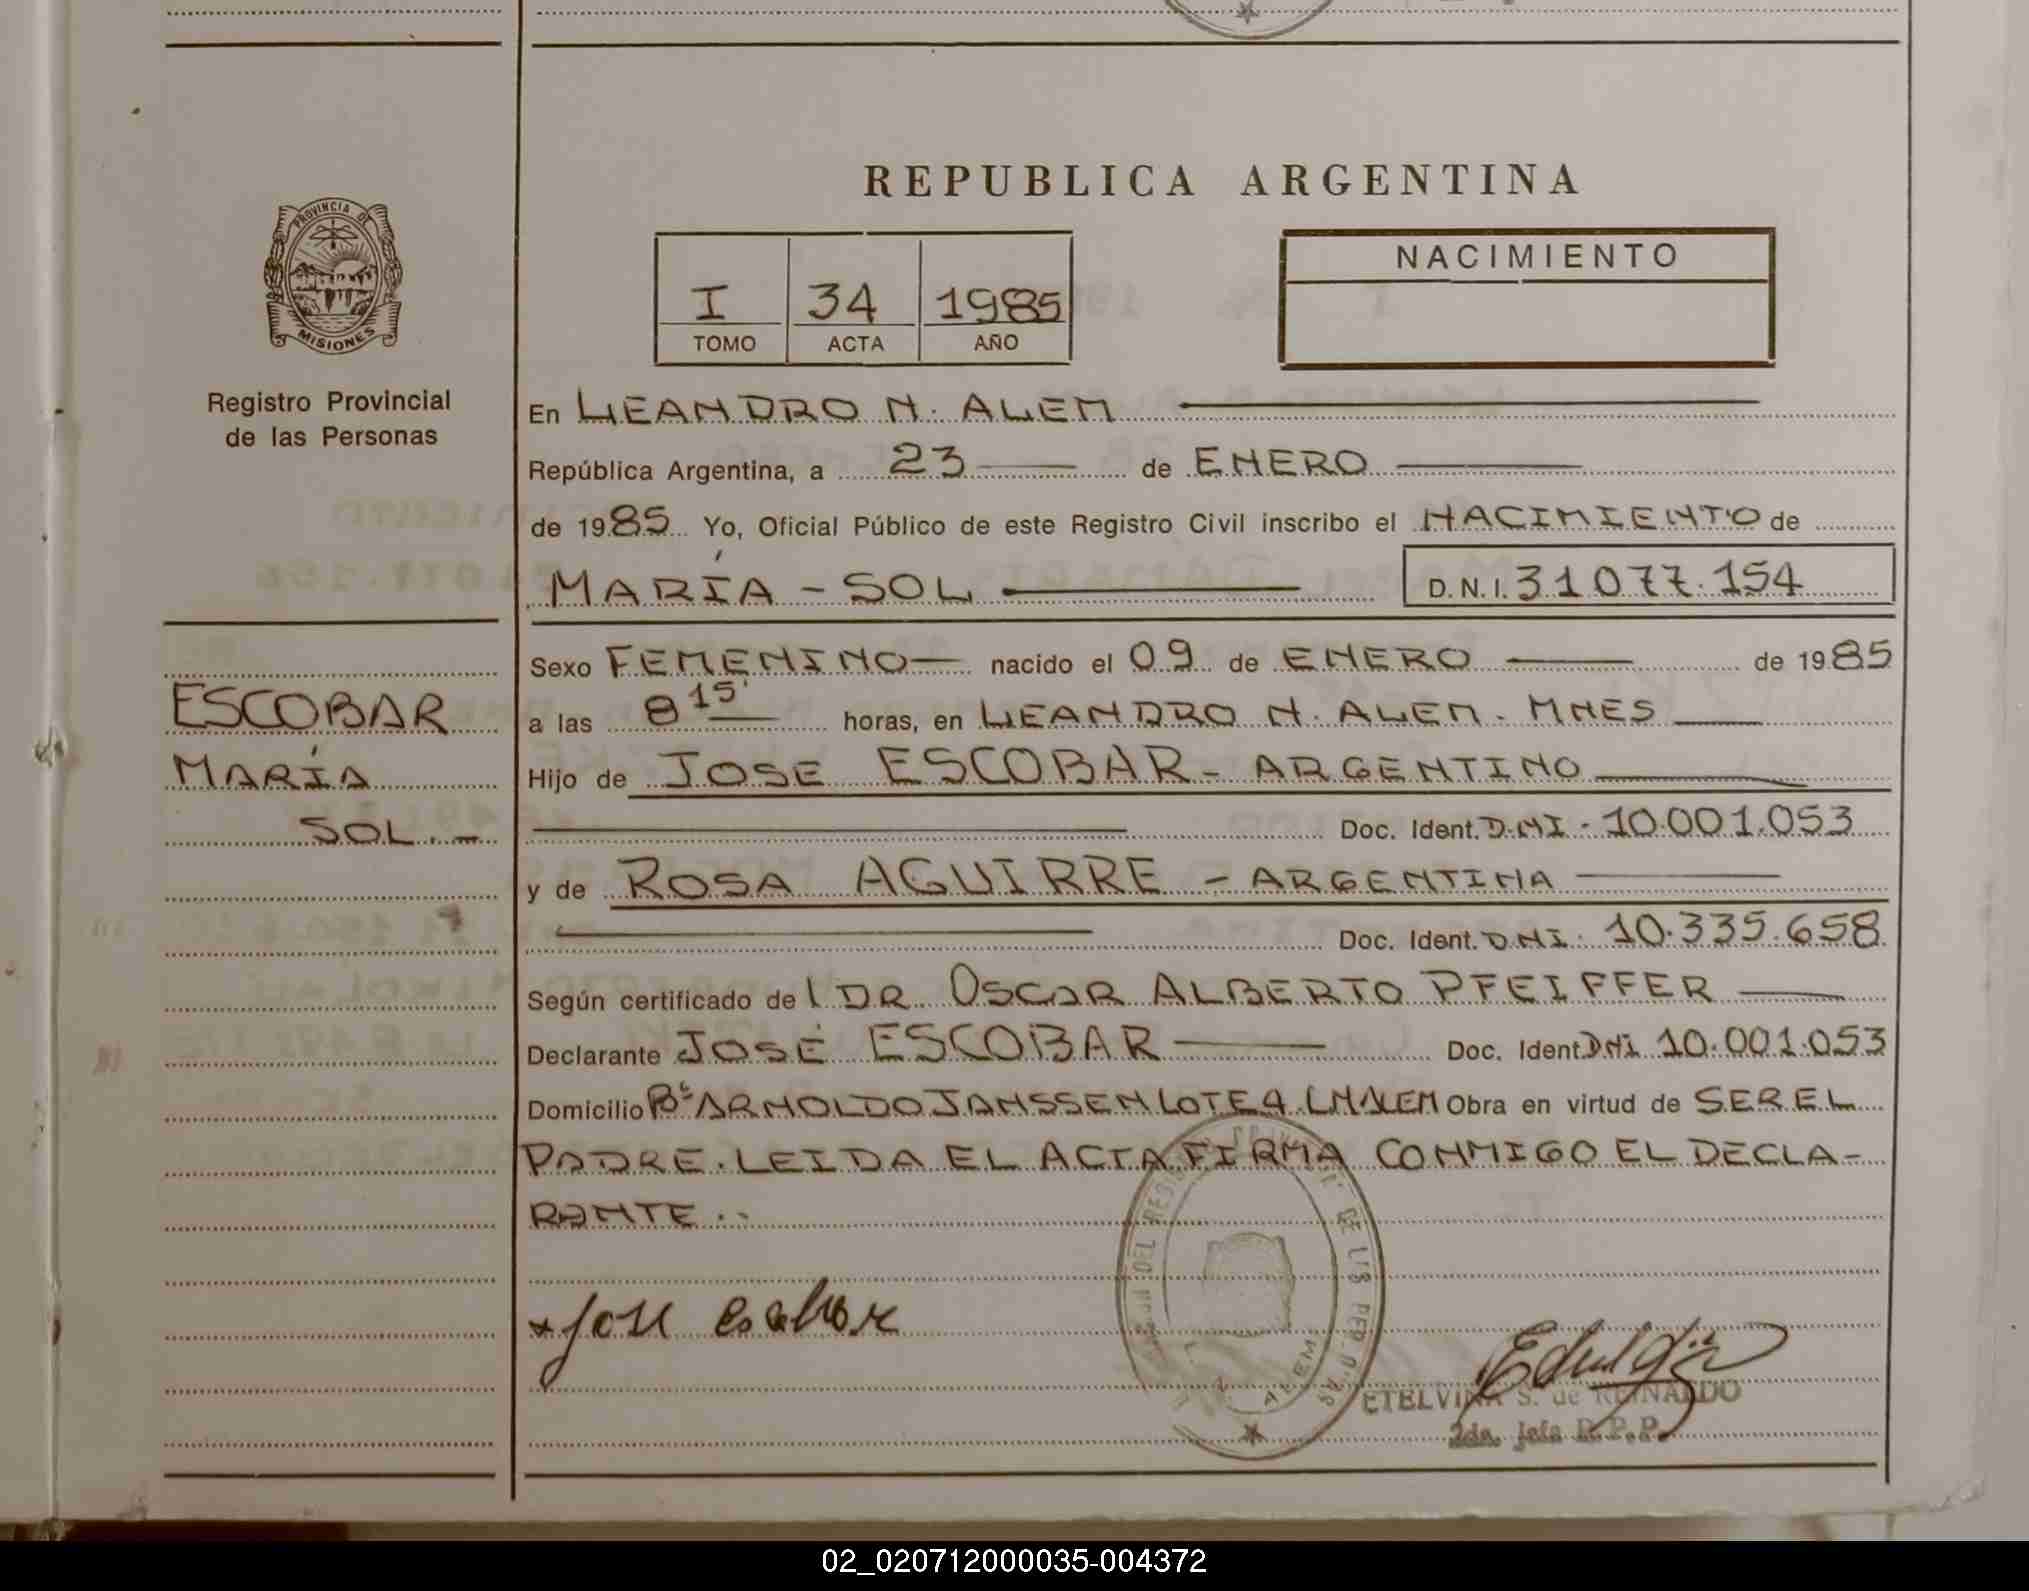 PROVINCIA DE
MISIONES
Registro Provincial
de las Personas
ESCOBAR
MARÍA
SOL.-
REPUBLICA ARGENTINA
I 34 1985
TOMO ACTA AÑO
NACIMIENTO
En LEANDRO N. ALEM
República Argentina, a 23 de ENERO
de 1985 Yo, Oficial Público de este Registro Civil inscribo el NACIMIENTO de
MARÍA - SOL D.N.I. 31077.154
Sexo FEMENINO nacido el 09 de ENERO de 1985
a las 8 15' horas, en LEANDRO N. ALEM. MNES
Hijo de JOSE ESCOBAR - ARGENTINO
Doc. Ident. DNI. 10.001.053
y de ROSA AGUIRRE - ARGENTINA
Doc. Ident. DNI. 10.335.658
Según certificado del DR OSCAR ALBERTO PFEIFFER
Declarante JOSÉ ESCOBAR Doc. Ident. DNI 10.001.053
Domicilio Bº ARNOLDO JANSSEN LOTE 4 L.N.ALEM Obra en virtud de SER EL
PADRE. LEIDA EL ACTA FIRMA CONMIGO EL DECLA-
RANTE.-
Jose escobar
ETELVINA S. de REINALDO
2da. Jefa R.P.P.
02_020712000035-004372